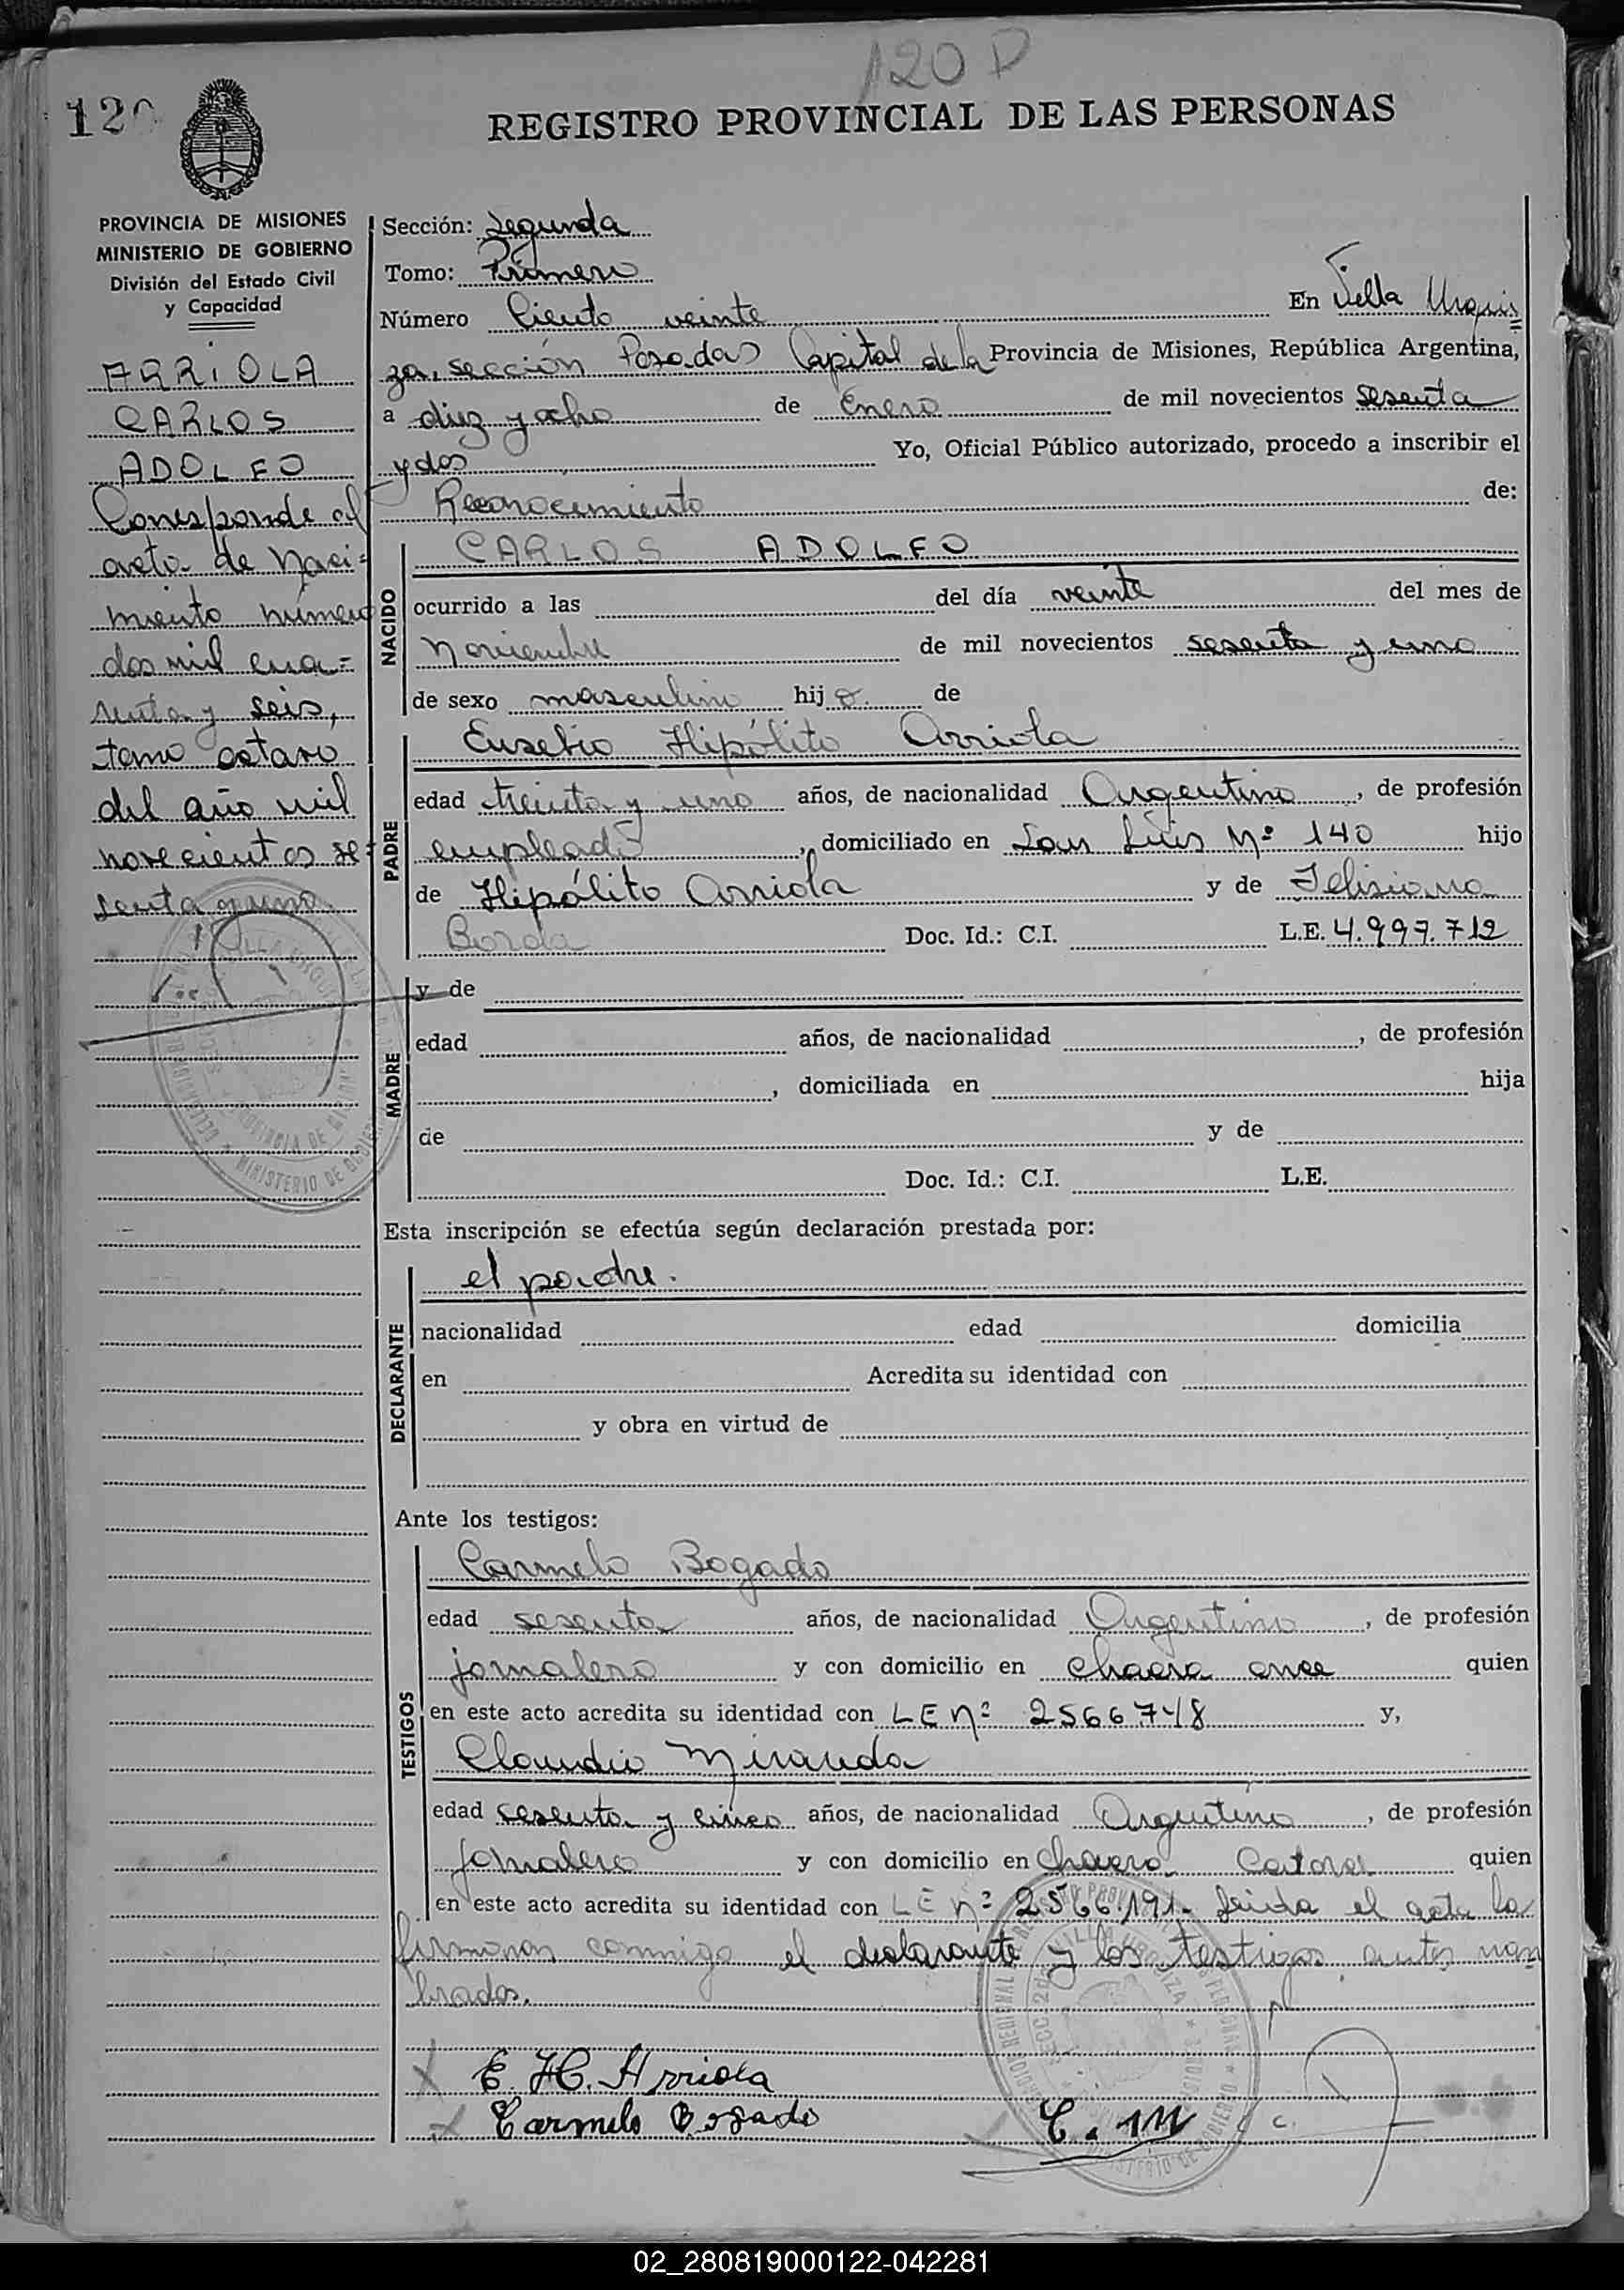 120 D
120
REGISTRO PROVINCIAL DE LAS PERSONAS
PROVINCIA DE MISIONES
MINISTERIO DE GOBIERNO
División del Estado Civil
y Capacidad
ARRIOLA
CARLOS
ADOLFO
Corresponde al
acto de Naci=
miento número
dos mil cua=
renta y seis,
tomo octavo
del año mil
novecientos se=
senta y uno
Sección: Segunda
Tomo: Primero
Número Ciento veinte En Villa Urqui=
za, sección Posadas Capital de la Provincia de Misiones, República Argentina,
a diez y ocho de Enero de mil novecientos sesenta
y dos Yo, Oficial Público autorizado, procedo a inscribir el
Reconocimiento de:
NACIDO
CARLOS ADOLFO
ocurrido a las del día veinte del mes de
Noviembre de mil novecientos sesenta y uno
de sexo masculino hijo de
PADRE
Eusebio Hipólito Arriola
edad treinta y uno años, de nacionalidad Argentino, de profesión
empleado, domiciliado en San Luis Nº 140 hijo
de Hipólito Arriola y de Felisiana
Borda Doc. Id.: C.I. L.E. 4.997.712
MADRE
y de
edad años, de nacionalidad , de profesión
, domiciliada en hija
de y de
Doc. Id.: C.I. L.E.
Esta inscripción se efectúa según declaración prestada por:
DECLARANTE
el padre.
nacionalidad edad domicilia
en Acredita su identidad con
y obra en virtud de
Ante los testigos:
TESTIGOS
Carmelo Bogado
edad sesenta años, de nacionalidad Argentino, de profesión
jornalero y con domicilio en chacra once quien
en este acto acredita su identidad con LE nº 2566748 y,
Claudio Miranda
edad sesenta y cinco años, de nacionalidad Argentino, de profesión
Jornalero y con domicilio en chacra Catorce quien
en este acto acredita su identidad con LE nº 2566.191. Leida el acta la
firmaron conmigo el declarante y los testigos antes nom
brados.
E. H. Arriola
Carmelo Bogado C. M
02_280819000122-042281